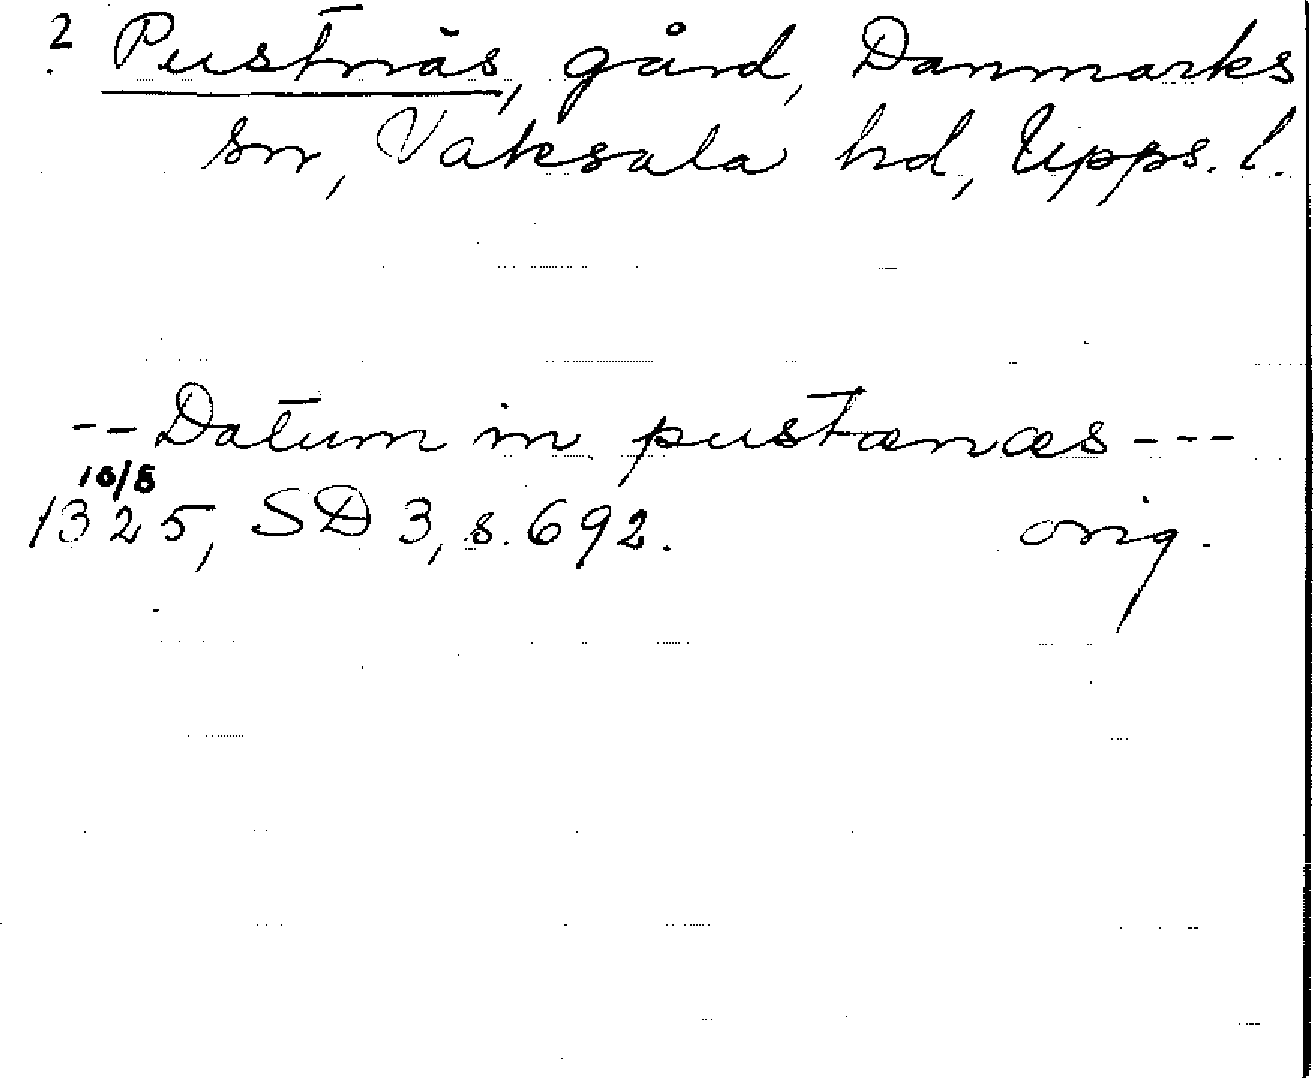 ? Pustnäs, gård, Danmarks
sn, Vaksala hd, Upps. l.
-- Datum in pustænæs ---
10/5
1325, SD 3, s. 692. orig.